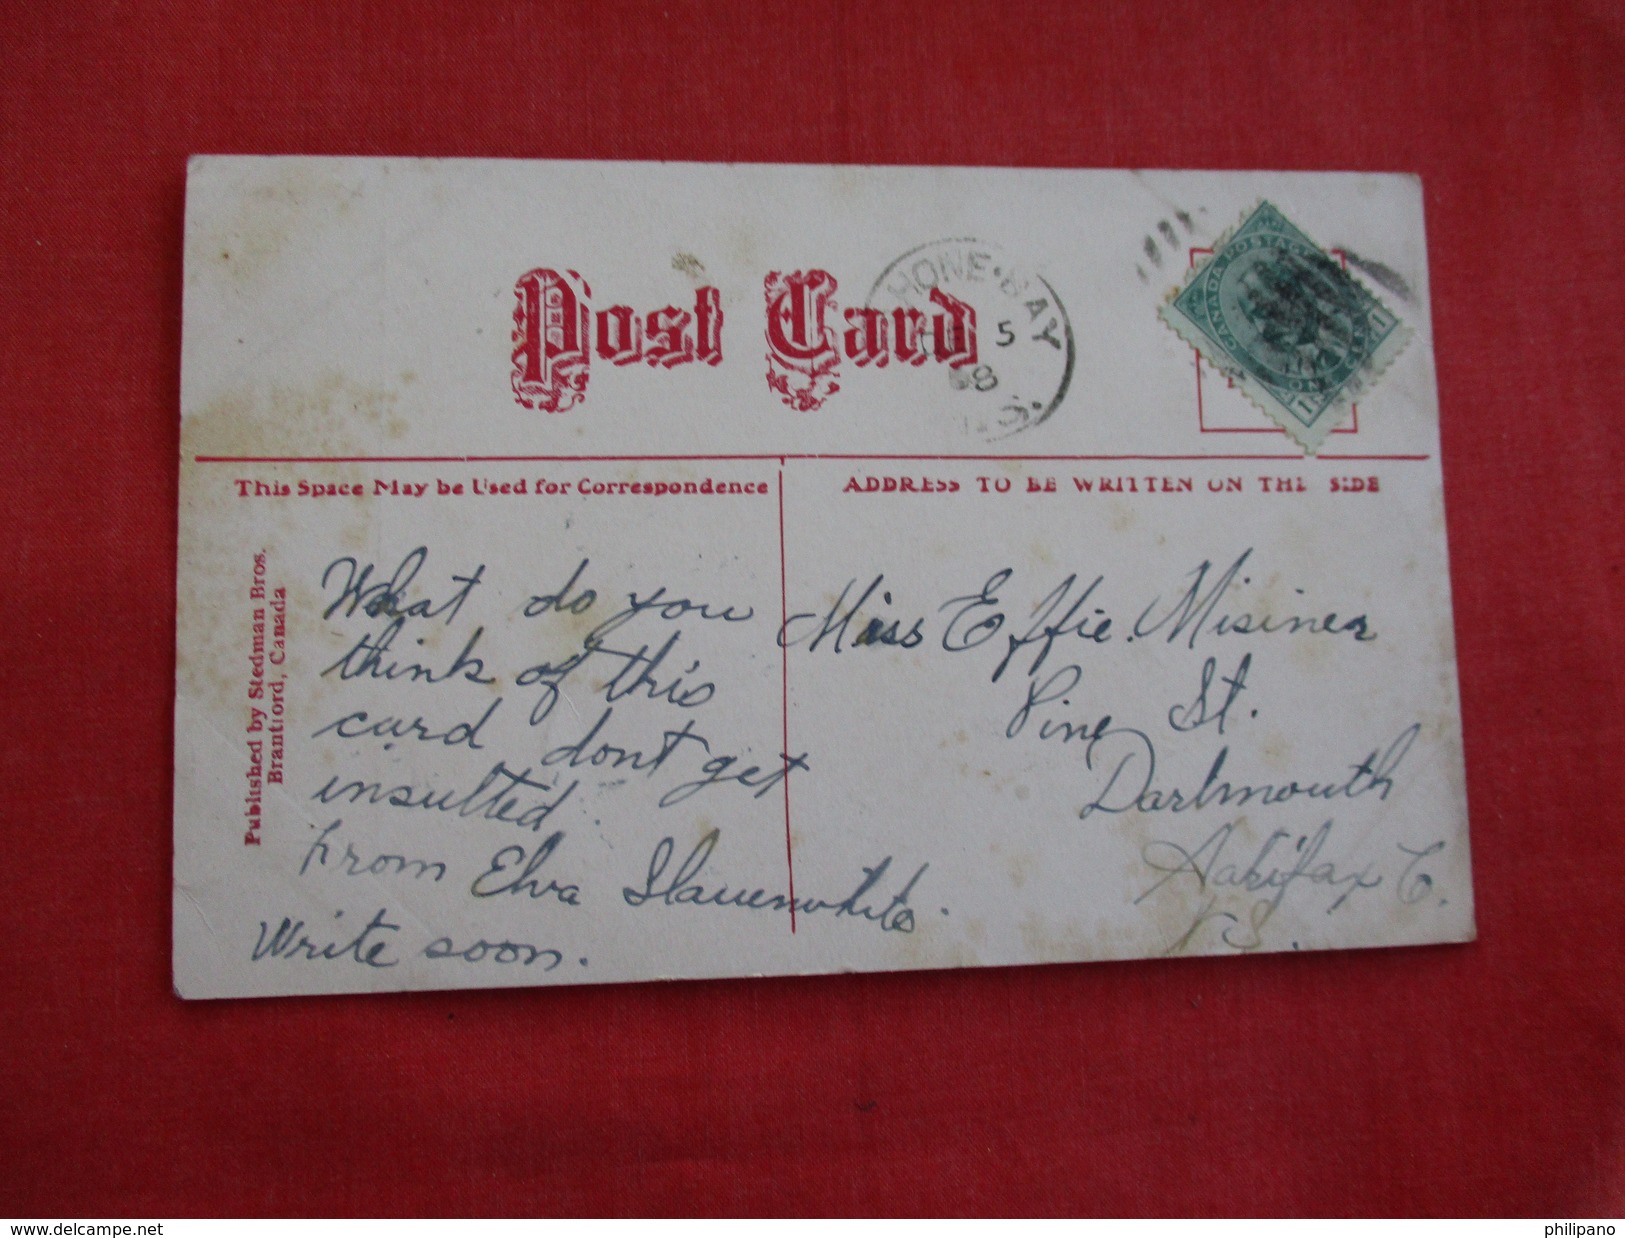 Post Card
HONE · BAY
5
08
N.S.
CANADA POSTAGE
1 1
This Space May be Used for Correspondence
ADDRESS TO BE WRITTEN ON THIS SIDE
Published by Stedman Bros.
Brantford, Canada
What do you
think of this
card dont get
insulted.
From Elva Slauenwhite.
Write soon.
Miss Effie. Misiner
Pine St.
Dartmouth
Halifax Co.
N.S.
www.delcampe.net
philipano